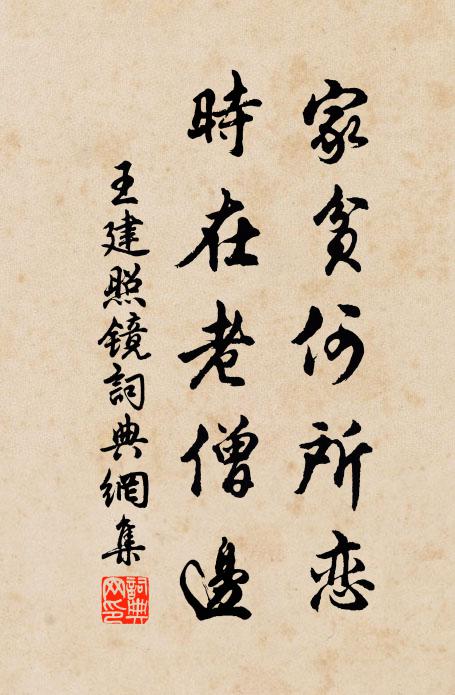 家貧何所恋
時在老僧邊
王建照鏡詞典網集
詞典網印